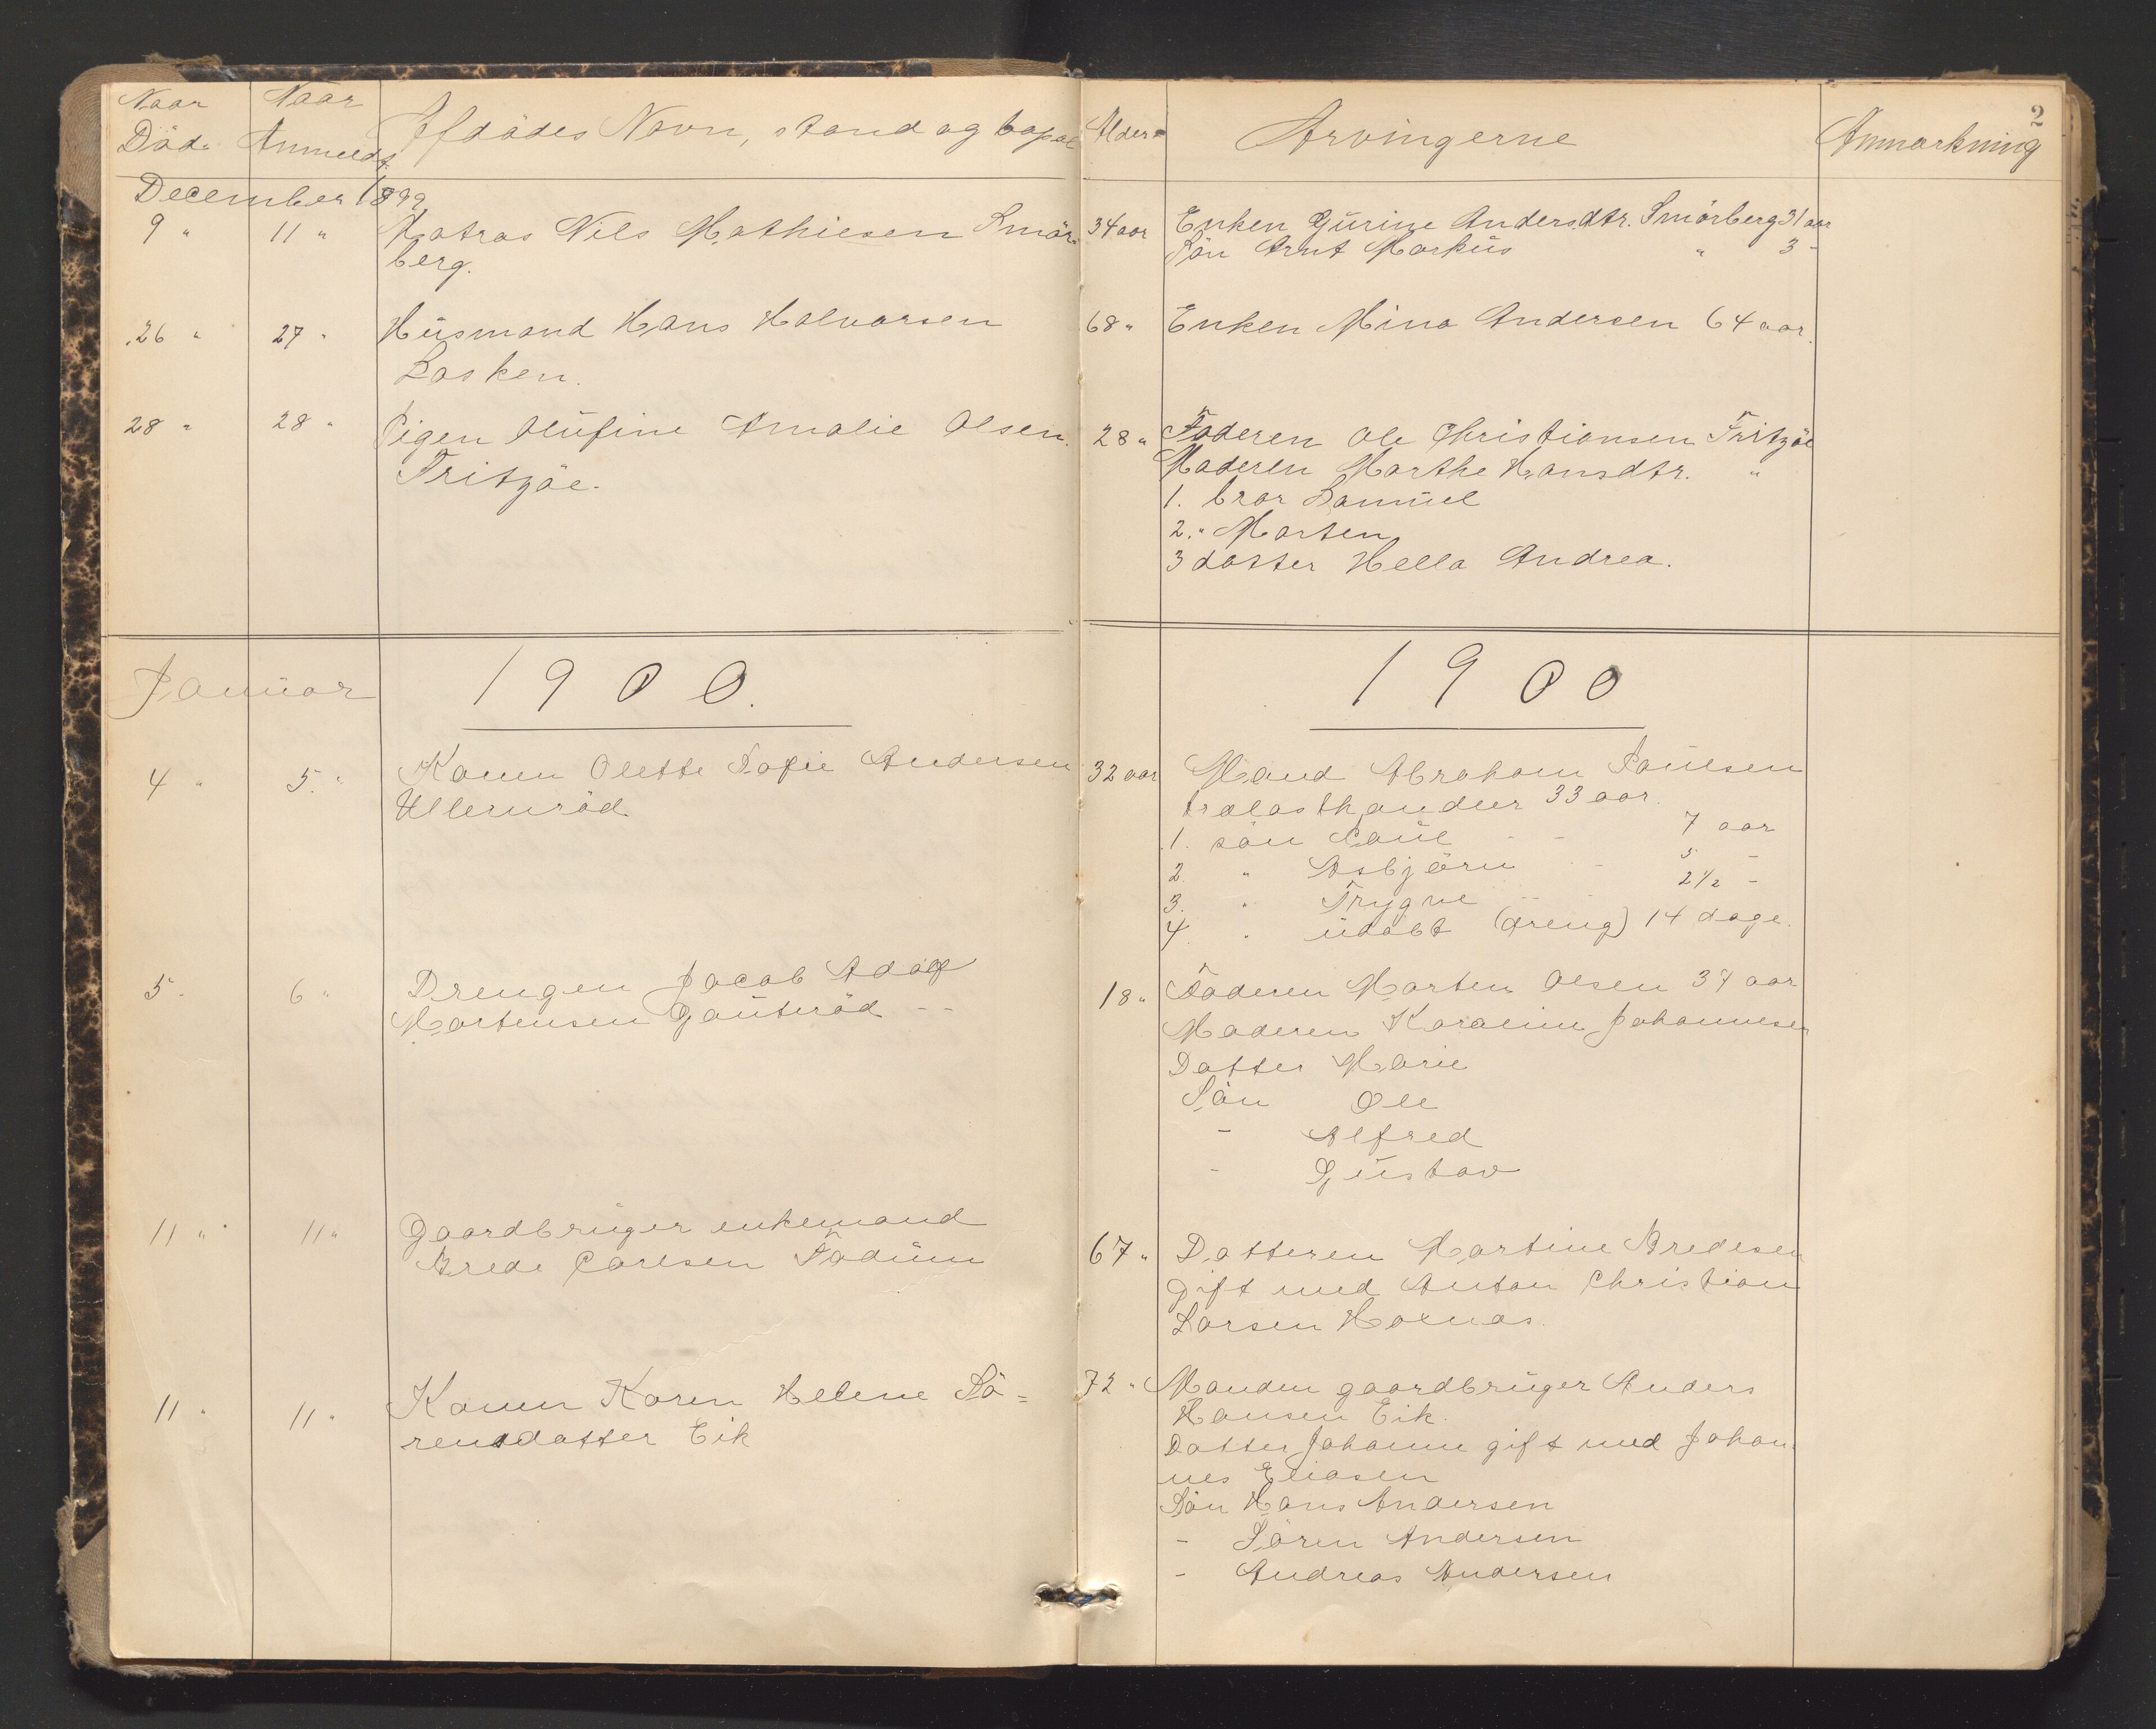 2
Naar Död. Naar Anmeldt. Afdödes Navn, stand og bopæl Alder Arvingerne Anmærkning
December 1899
9 " 11 " Matros Nils Mathiesen Smör- 34 aar Enken Gurine Andersdtr. Smörberg 31 aar
berg. Sön Arnt Markus " 3 -
26 " 27 " Husmand Hans Halvorsen 68 " Enken Mina Andersen 64 aar.
Lasken.
28 " 28 " Pigen Olufine Amalie Olsen. 28 " Faderen Ole Christiansen Fritzöe
Fritzöe. Moderen Marthe Hansdtr. "
1. bror Samuel
2. " Morten
3 datter Hella Andrea.
Januar 1900. 1900
4 " 5. " Konen Olette Sofie Andersen 32 aar Mand Abraham Paulsen
Ullernröd trælasthandler 33 aar.
1. sön Paul - - 7 aar
2. " Asbjörn - 5 -
3. " Trygve 2 1/2 -
4. " udöbt (dreng) 14 dage.
5 - 6 " Drengen Jacob Adolf 18 " Faderen Morten Olsen 37 aar
Mortensen Gauteröd - - Moderen Karoline Johannesen
Datter Marie
Sön Ole
- Alfred
- Gustav
11 " 11 " Gaardbruger enkemand 67 " Datteren Martine Bredesen
Brede Carlsen Fadum gift med Anton Christian
Larsen Holmas.
11 " 11 " Konen Karen Helene Sö= 72 " Manden gaardbruger Anders
rensdatter Eik Hansen Eik.
Datter Johanne gift med Johan-
nes Eliasen
Sön Hans Andersen
- Sören Andersen
- Andreas Andersen